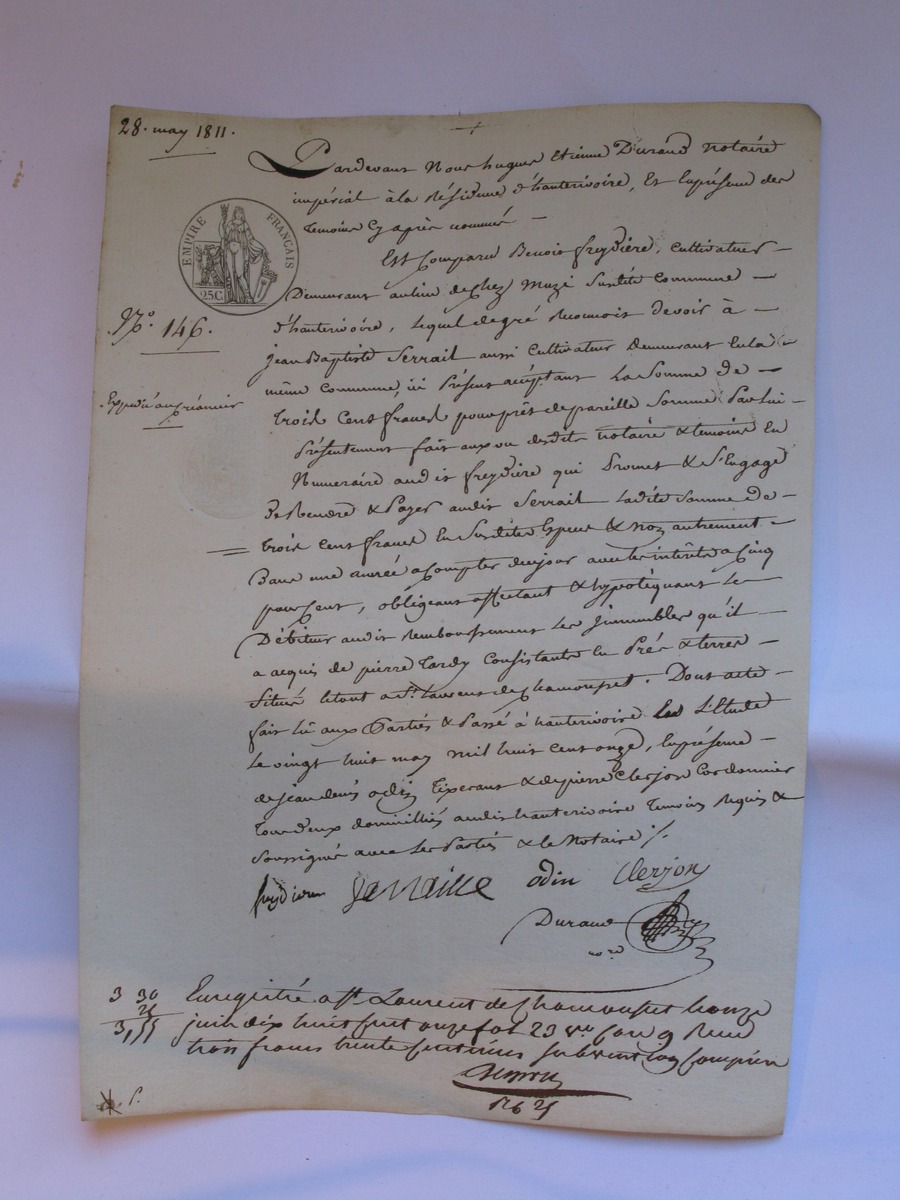 28. may 1811.
Pardevant Nous hugues Etienne Durand notaire
impérial à la Résidence d'hauterivoire, Et En présence des
temoins Cy après nommés —
EMPIRE FRANÇAIS
25C
Est Comparu Benoit freydière, Cultivateur —
Demeurant au lieu de chez Muzé Susdite Commune —
N.º 146.
d'hauterivoire, lequel de gré Reconnoit devoir à —
jean Baptiste Serrail aussi Cultivateur Demeurant En la —
même Commune, ici Présent acceptant La Somme de —
Expedié au créancier
trois Cent francs pour prêt de pareille Somme Par lui —
Présentement fait aux vu desdits notaire & temoins En
Numeraire audit freydière qui Promet & S'Engage
De Rendre & Payer audit Serrail Ladite Somme de —
trois Cent francs En Susdites Especes & non autrement —
Dans une année a Compter du jour avec les intérêts a Cinq
pour Cent, obligeant affectant & hypotéquant Le
Débiteur audit Remboursement Les jmmeubles qu'il —
a acquis de pierre tardy Consistants En Prés & terres —
Situés le tout a St. Laurent de Chamousset. Dont acte —
fait lû aux Parties & Passé à hauterivoire En L'Etude
Le vingt huit may mil huit cent onze, En présence —
de jean denis odin tixerant & de pierre Clerjon Cordonnier
tous deux domicilliés audit hauterivoire temoins Requis &
Soussignés avec les Parties & le Notaire ./.
freydiere Seraille odin Clerjon
Durand
nre
3 30
25
3,55
Enregistré a St. Laurent de Chamousset le onze
juin dix huit cent onze fol 23 vo. Case 9 Reçu
trois francs trente centimes subvention comprise